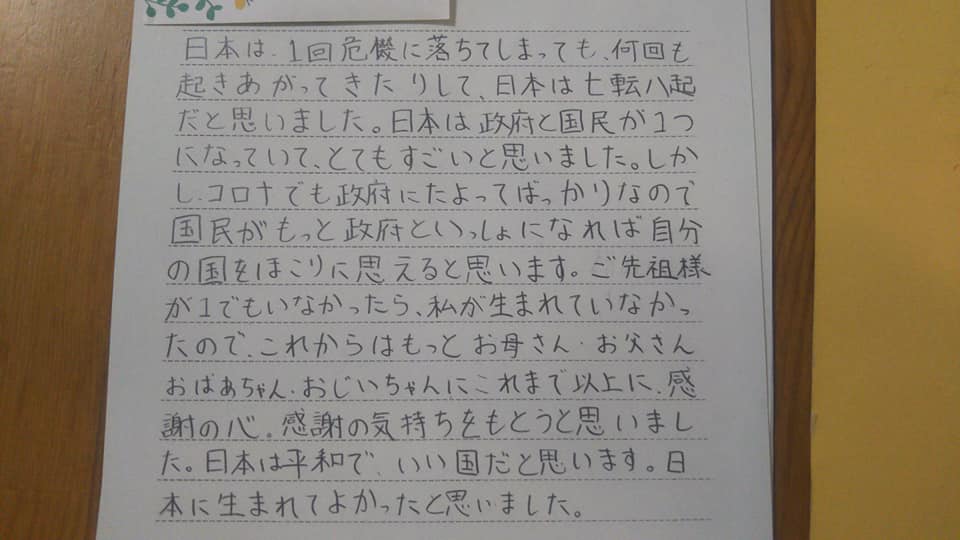 日本は、1回危機に落ちてしまっても、何回も
起きあがってきたりして、日本は七転八起
だと思いました。日本は政府と国民が1つ
になっていて、とてもすごいと思いました。しか
し、コロナでも政府にたよってばっかりなので
国民がもっと政府といっしょになれば自分
の国をほこりに思えると思います。ご先祖様
が1でもいなかったら、私が生まれていなかっ
たので、これからはもっとお母さん・お父さん
おばあちゃん・おじいちゃんにこれまで以上に、感
謝の心。感謝の気持ちをもとうと思いまし
た。日本は平和で、いい国だと思います。日
本に生まれてよかったと思いました。